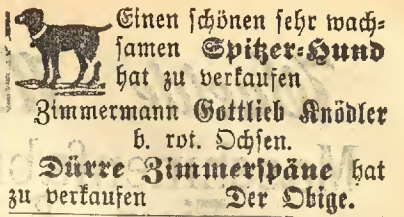 Einen schönen sehr wach-
samen Spitzer-Hund
hat zu verkaufen
Zimmermann Gottlieb Knödler
b. rot. Ochsen.
Dürre Zimmerspäne hat
zu verkaufen Der Obige.